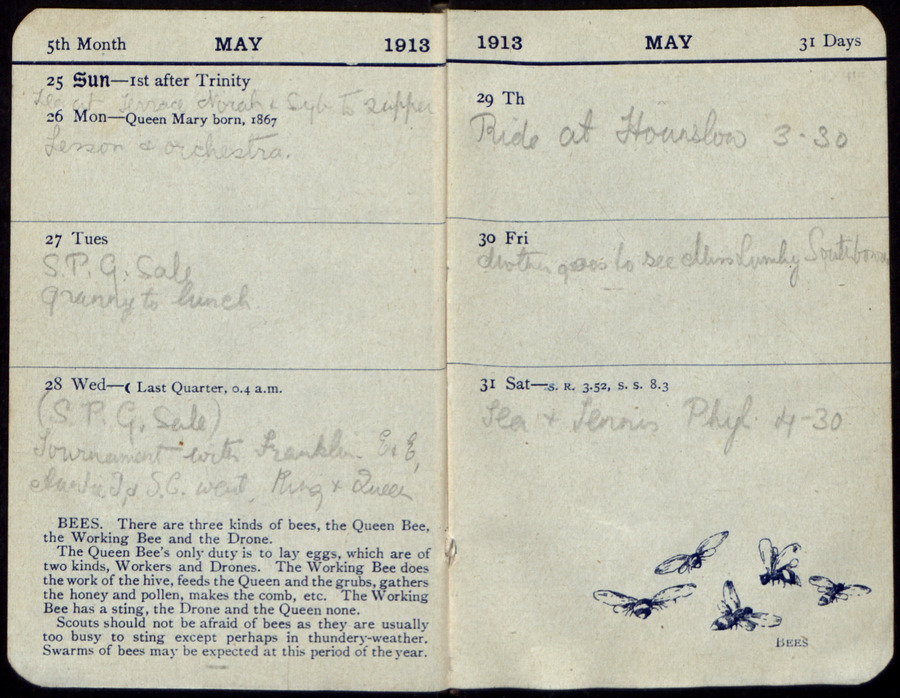 5th Month MAY 1913
25 Sun—1st after Trinity
Tea at Terrace Norah & Syb. to supper
26 Mon—Queen Mary born, 1867
Lesson & orchestra.
27 Tues
S.P.G. Sale
Granny to lunch
28 Wed—☾ Last Quarter, 0.4 a.m.
(S.P.G. Sale)
Tournament with Franklin E. E,
S.C. went, King & Queen
BEES. There are three kinds of bees, the Queen Bee,
the Working Bee and the Drone.
The Queen Bee's only duty is to lay eggs, which are of
two kinds, Workers and Drones. The Working Bee does
the work of the hive, feeds the Queen and the grubs, gathers
the honey and pollen, makes the comb, etc. The Working
Bee has a sting, the Drone and the Queen none.
Scouts should not be afraid of bees as they are usually
too busy to sting except perhaps in thundery-weather.
Swarms of bees may be expected at this period of the year.
1913 MAY 31 Days
29 Th
Ride at Hounslow 3-30
30 Fri
Mother goes to see Miss Lumby
31 Sat—S. R. 3.52, S. S. 8.3
Tea & Tennis Phyl. 4-30
BEES